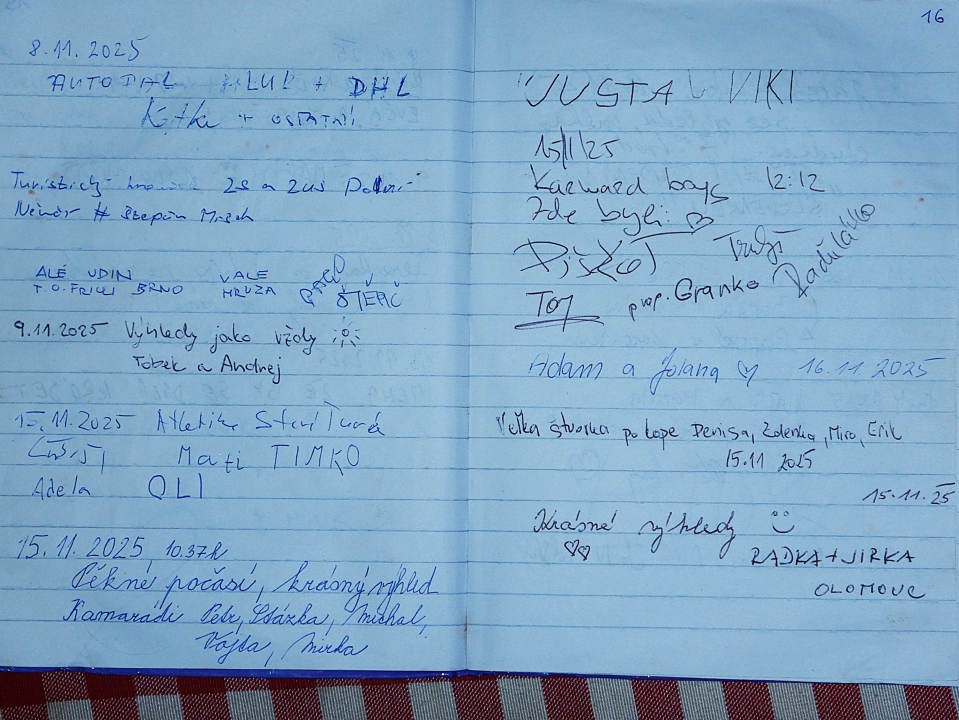 8.11.2025
AUTOPAL HLUK + DHL
Katka + OSTATNÍ
Turistický
# Štěpán
ALÉ UDIN VALE
T.O. FRIULI BRNO HRUZA
9.11.2025 Výhledy jako vždy
Tobek a Andrej
15.11.2025 Atletika Stará Turá
Mati TIMKO
Adela OLI
15.11.2025 10.37h
Pěkné počasí, krásný výhled
Kamarádi Petr, Stázka, Michal,
Vojta, Mirka
16
JUSTA VIKI
15/11/25
Karward boys 12:12
Zde byli:
Toy prop. Granko
Adam a Jolana ♡ 16.11 2025
Veľká štvorka po kope Denisa, Zdenka, Miro, Erik
15.11 2025
15.11.25
Krásné výhledy
RADKA + JIRKA
OLOMOUC